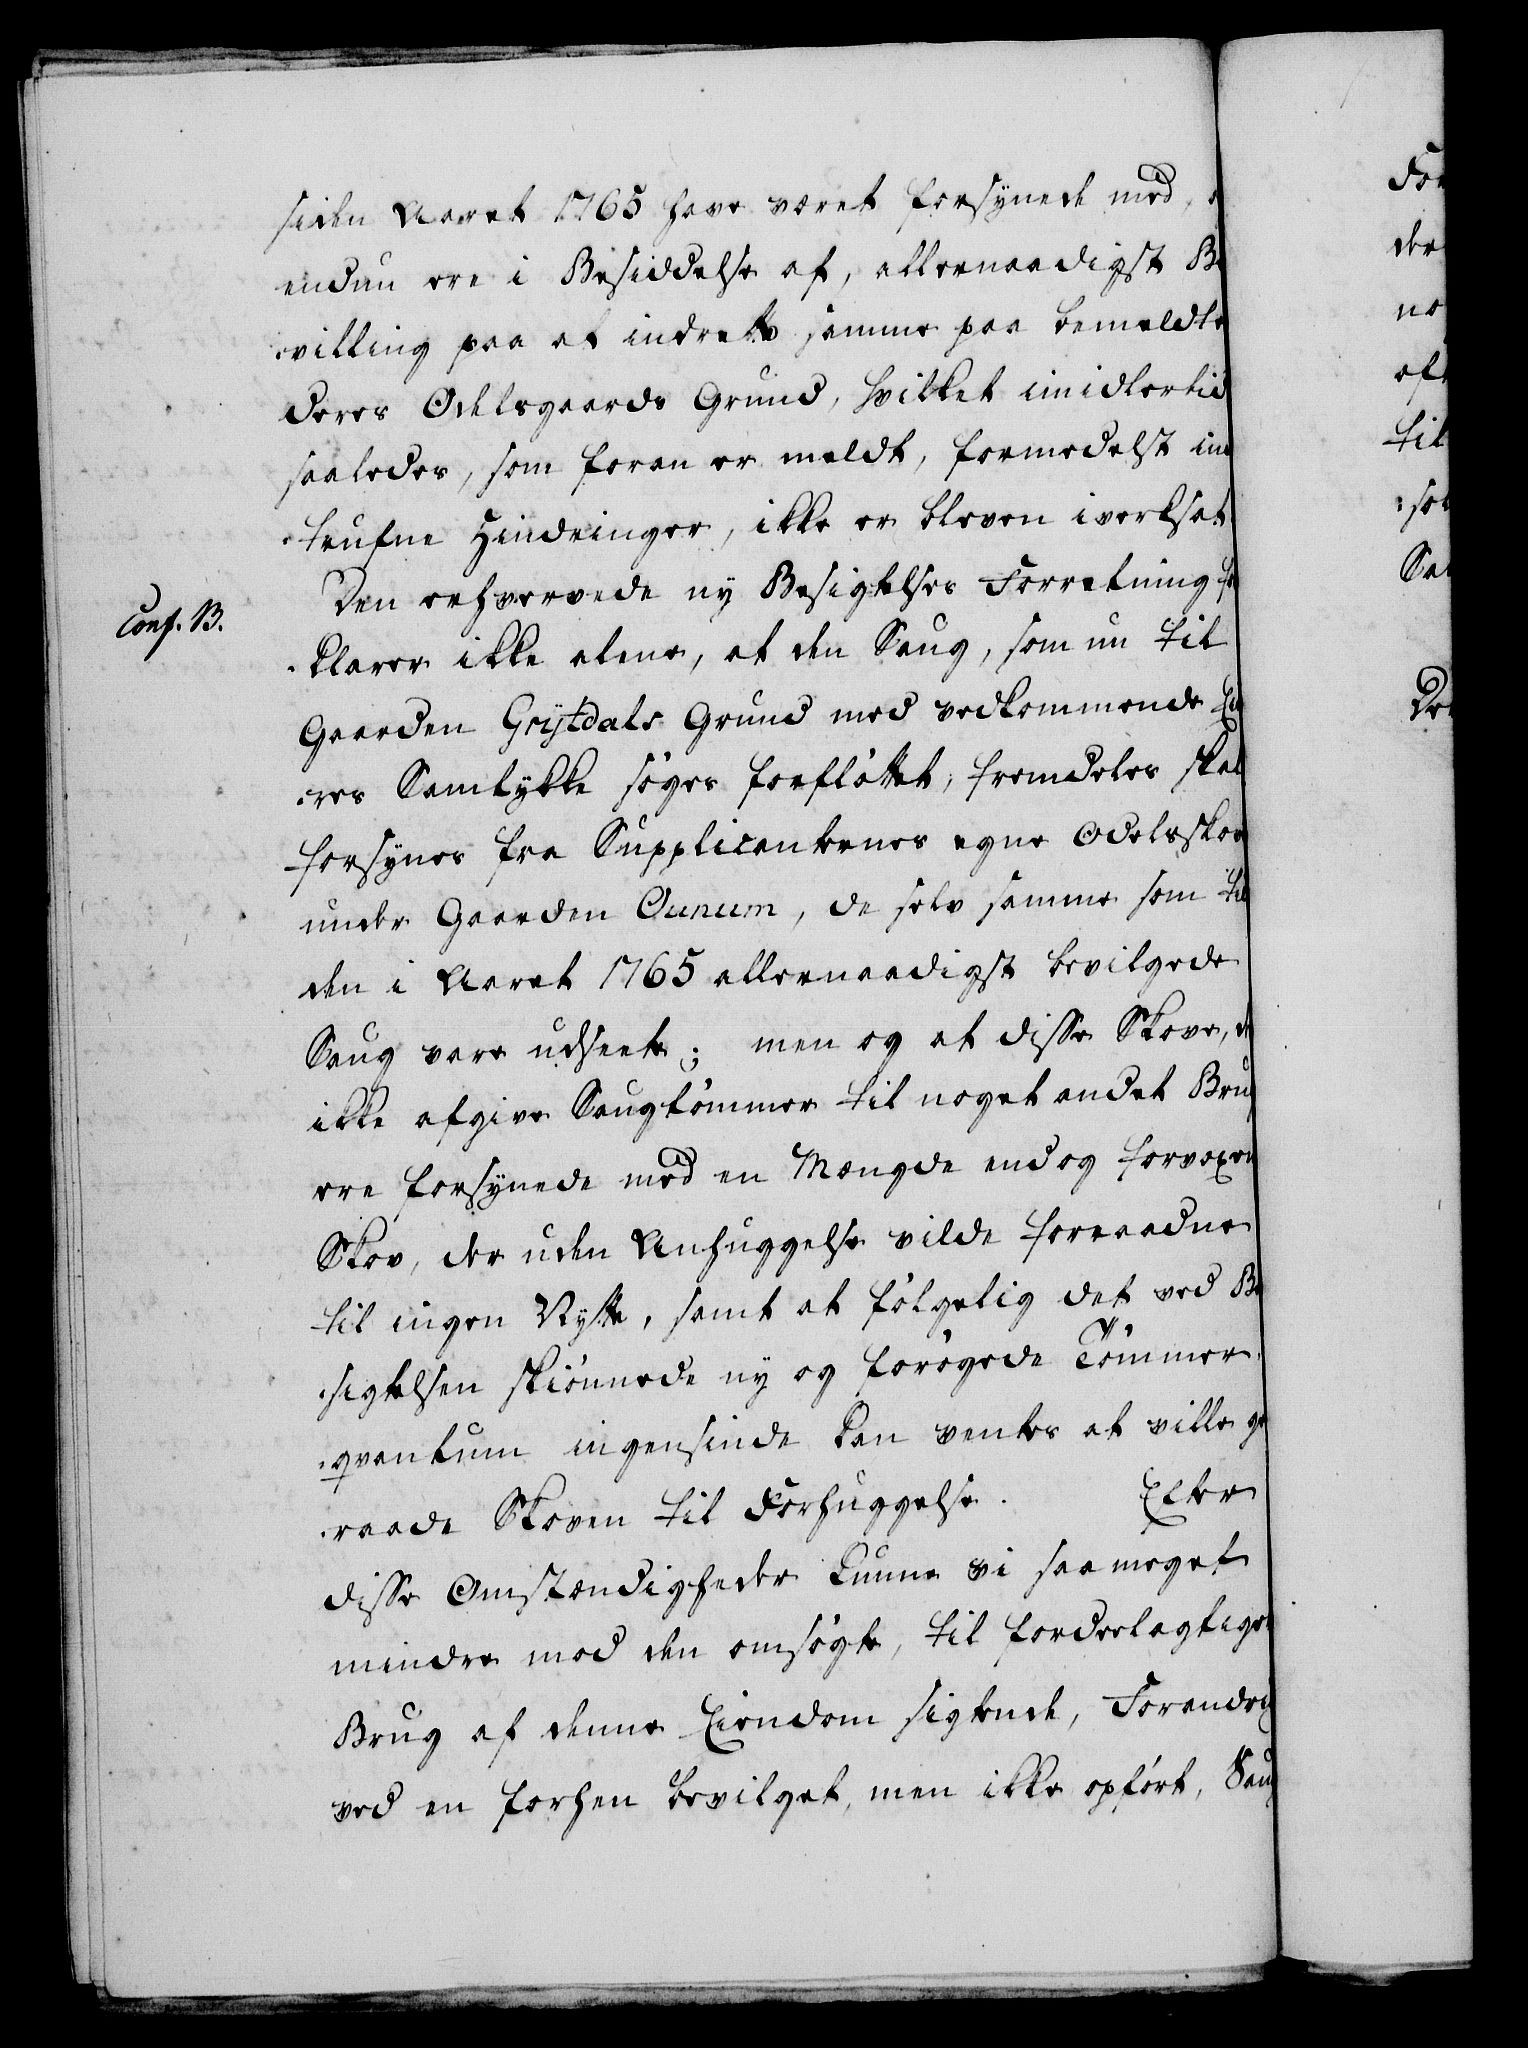 siden Aaret 1765 have været forsynede med,
endnu ere i Besiddelse af, allernaadigst Be
villing paa at indrette samme paa bemeldte
deres Odelsgaards Grund, hvilket imidlertid
saaledes, som foran er meldt, formedelst ind
trufne Hindringer, ikke er bleven iverksat.
Den erhvervede ny Besigtelses Forretning for
Conf. B.
klarer ikke alene, at den Saug, som nu til
Gaarden Grÿtdals Grund med vedkommende Ei
res Samtykke søges forfløttet, fremdeles skal
forsynes fra Supplicanternes egne Odelsskov
under Gaarden Ounum, de selv samme som til
den i Aaret 1765 allernaadigst bevilgede
Saug vare udseete; men og at disse Skove, der
ikke afgive Saugtømmer til noget andet Brug
ere forsynede med en Mængde endog forvoxen
Skov, der uden Anhuggelse vilde forraadne
til ingen Nytte, samt at følgelig det ved Be
sigtelsen skiønnede ny og forøgede Tømmer
qvantum ingensinde kan ventes at ville ge
raade Skoven til Forhuggelse. Efter
disse Omstændigheder kunne vi saa meget
mindre mod den omsøgte, til fordeelagtigere
Brug af denne Eiendom sigtende, Forandring
ved en forhen bevilget, men ikke opført, Saug
For
der
no
aft
til
so
Sa
De